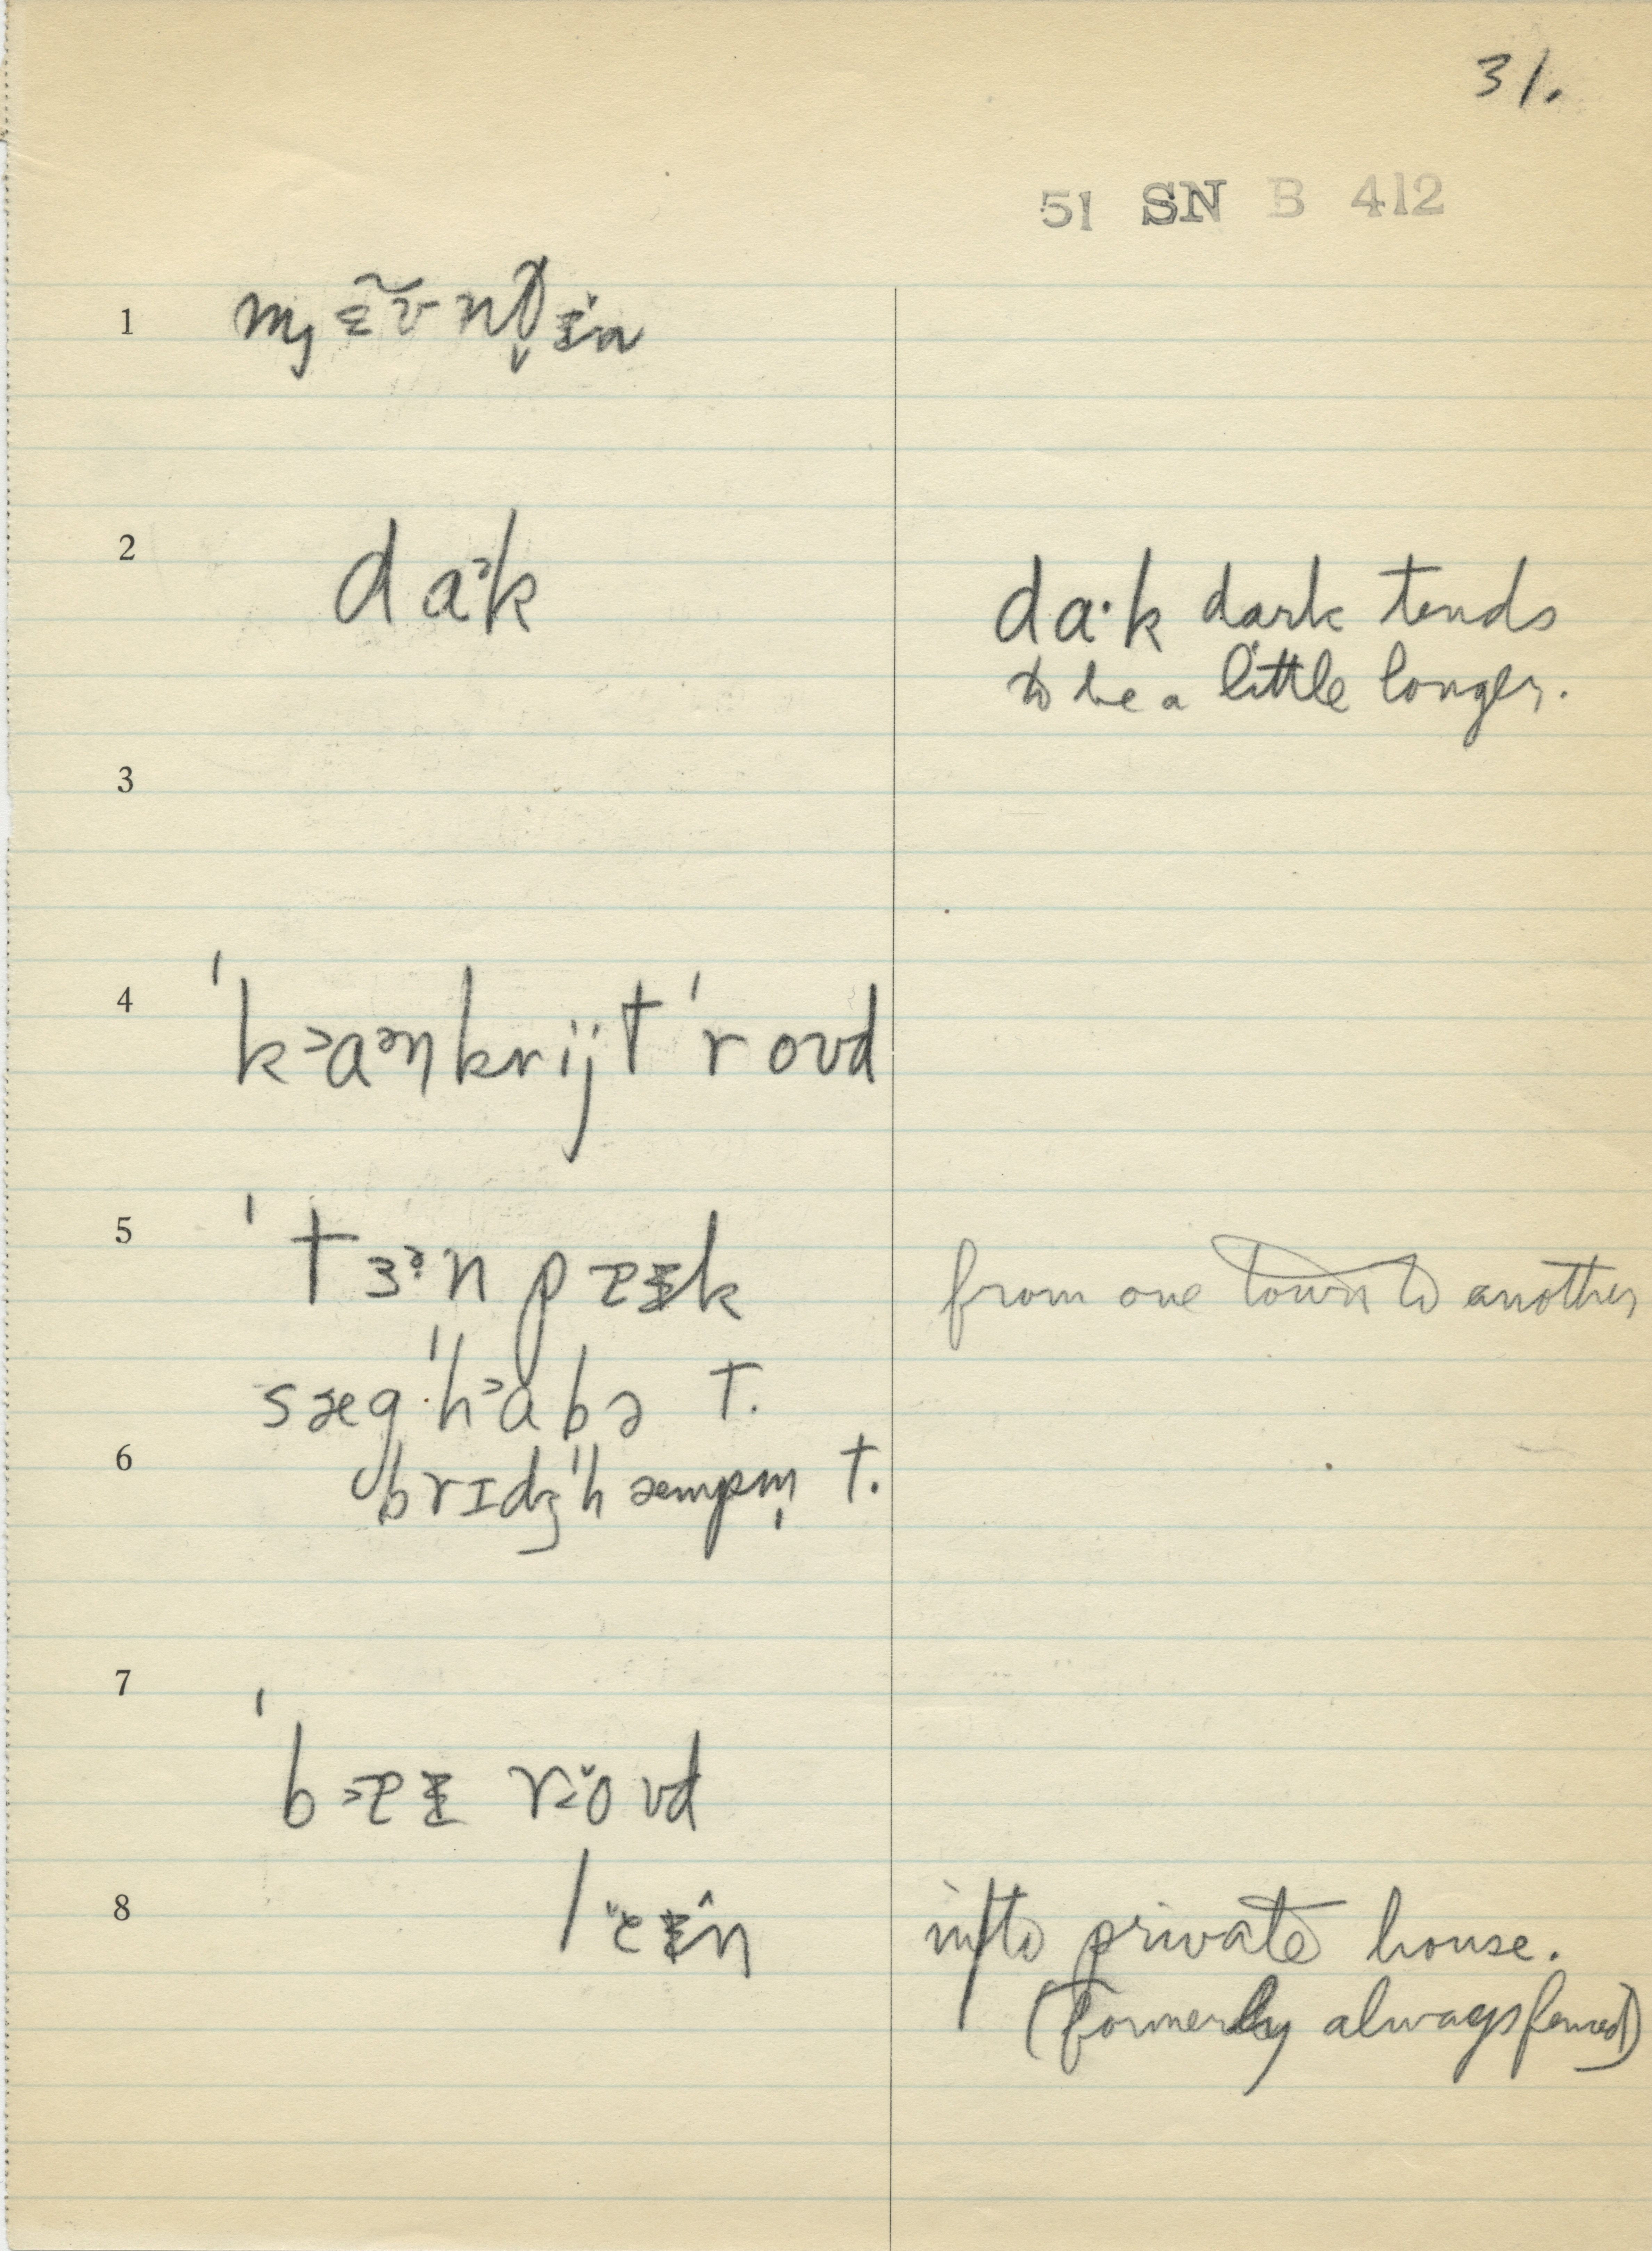 31.
51 SN B 412
1
2 daᵊk da·k dark tends
to be a little longer.
3
4 ˈkᵊaᵊŋkrijt ˈroʊd
5 ˈtɜᵊn from one town to another
sægˈhᵊabə t.
6 brɪdʒˈhæmpm̩ t.
7
8 into private house.
(formerly always fenced)